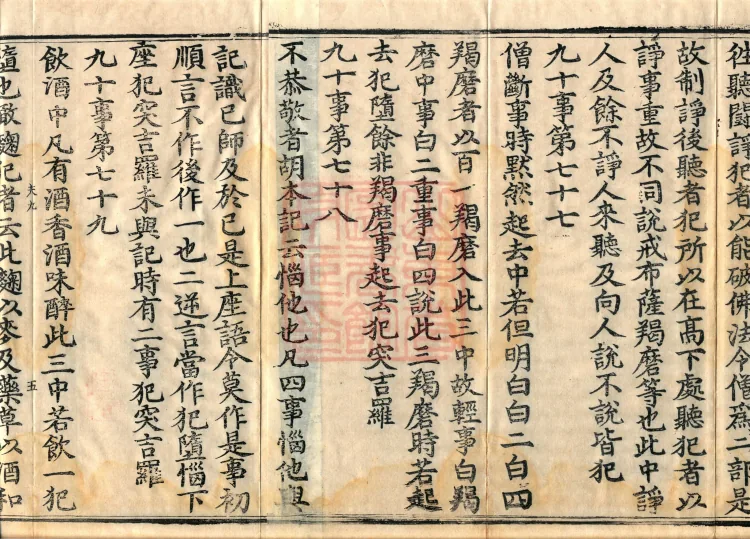 往聽鬪諍犯者以能破佛法令僧爲二部是
故制諍後聽者犯所以在髙下處聽犯者以
諍事重故不同說戒布薩羯磨等也此中諍
人及餘不諍人來聽及向人說不說皆犯
九十事第七十七
僧斷事時黙然起去中若但明白白二白四
羯磨者以百一羯磨入此三中故輕事白羯
磨中事白二重事白四說此三羯磨時若起
去犯墮餘非羯磨事起去犯突吉羅
九十事第七十八
不恭敬者胡本記云惱他也凡四事惱他輿
記識已師及於已是上座語令莫作是事初
順言不作後作一也二逆言當作犯墮惱下
座犯突吉羅未與記時有二事犯突吉羅
九十事第七十九
飲酒中凡有酒香酒味醉此三中若飲一犯
夫九 五
墮也噉麴犯者云此麴以麥及藥草以酒和